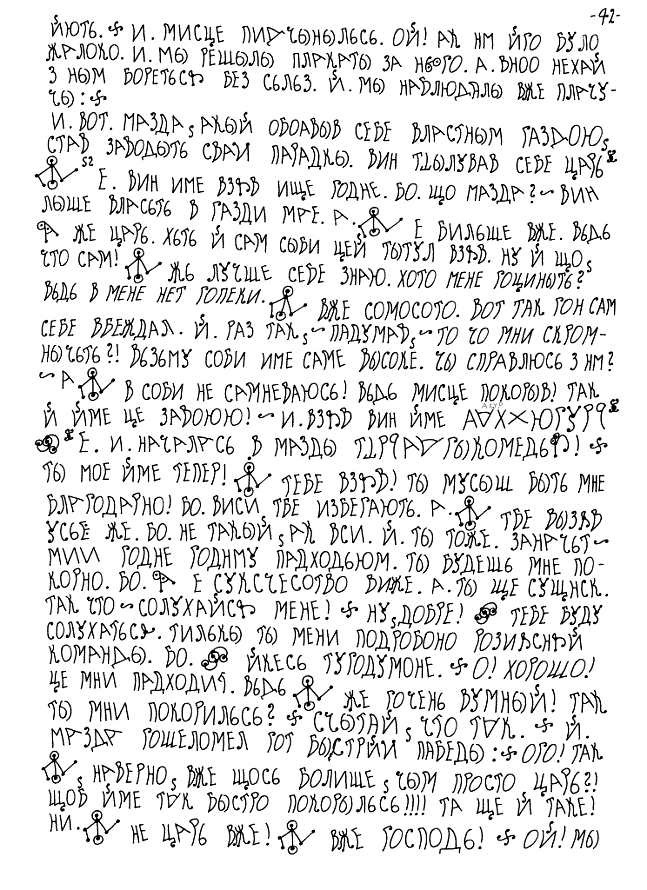 -42-
ЙЮТЬ. И. МИСЦЕ ПИРЧЫНЫЛЬСЬ. ОЙ! АК НМ ЙГО БУЛО
ЖАЛОКО. И. МЫ РЕШЫЛЫ ПЛАКАТЫ ЗА НЬОГО. А. ВНОО НЕХАЙ
З НЫМ БОРЕТЬСЯ БЕЗ СЬЛЬЗ. Й. МЫ НАБЛЮДАЛЫ ВЖЕ ПЛАЧУ-
ЧЫ:
И. ВОТ. МАЗДА, АКЫЙ ОБОАВЫВ СЕБЕ ВЛАСТНЫМ ГАЗДОЮ,
СТАВ ЗАВОДЫТЬ СВАИ ПАРАДКЫ. ВИН ТЫЛУВАВ СЕБЕ ЦАРЬ
52 Е. ВИН ИМЕ ВЗЯВ ИЩЕ ГОДНЕ. БО. ЩО МАЗДА? ВИН
ЛЫШЕ ВЛАСЬТЬ В ГАЗДИ МАЕ. А. Е БИЛЬШЕ ВЖЕ. ВЬДЬ
Я ЖЕ ЦАРЬ. ХЬТЬ Й САМ СЫБИ ЦЕЙ ТЫТУЛ ВЗЯВ. НУ Й ЩО,
ЧТО САМ! ЖЬ ЛУЧШЕ СЕБЕ ЗНАЮ. ХОТО МЕНЕ ГОЦИНЫТЬ?
ВЬДЬ В МЕНЕ НЕТ ГОПЕКИ. ВЖЕ СОМОСОТО. ВОТ ТАК ГОН САМ
СЕБЕ ВБЕЖДАЛ. Й. РАЗ ТАК, ПАДУМАВ, ТО ЧО МНИ СКРОМ-
НЫЧЬТЬ?! ВЬЗЬМУ СОБИ ИМЕ САМЕ ВЫСОКЕ. ЧЫ СПРАВЛЮСЬ З НМ?
А В СОБИ НЕ САМНЕВАЮСЬ! ВЬДЬ МИСЦЕ ПОКОРЫВ! ТАК
Й ЙМЕ ЦЕ ЗАВОЮЮ! И. ВЗЯВ ВИН ЙМЕ
Е. И. НАЧАЛАСЬ В МАЗДЫ
ТЫ МОЕ ЙМЕ ТЕПЕР! ТЕБЕ ВЗЯВ! ТЫ МУСЫШ БЫТЬ МНЕ
БЛАГОДАРНО! БО. ВИСИ ТБЕ ИЗБЕГАЮТЬ. А. ТБЕ ВЫЗЯВ
УСЬЕ ЖЕ. БО. НЕ ТАКЫЙ, АК ВСИ. Й. ТЫ ТОЖЕ. ЗАНАЧЬТ
МИ ГОДНЕ ГОДНМУ ПАДХОДЬЮМ. ТЫ БУДЕШЬ МНЕ ПО-
КОРНО. БО. Я Е СУКСЧЕСОТВО ВИЖЕ. А. ТЫ ЩЕ СУЩНСК.
ТАК ЧТО СОЛУХАЙСЯ МЕНЕ! НУ, ДОБРЕ! ТЕБЕ БУДУ
СОЛУХАТЬСЯ. ТИЛЬКЫ ТЫ МЕНИ ПОДРОБОНО РОЗИВСНЯЙ
КОМАНДЫ. БО. ЙКЕСЬ ТУГОДУМОНЕ. О! ХОРОШО!
ЦЕ МНИ ПАДХОДИТ. ВЬДЬ ЖЕ ГОЧЕНЬ ВУМНЫЙ! ТАК
ТЫ МНИ ПОКОРИЛЬСЬ? СЧЫТАЙ, ЧТО ТАК. Й.
МАЗДА ГОШЕЛОМЕЛ ГОТ БЫСТРИЙ ПАБЕДЫ: ОГО! ТАК
, НАВЕРНО, ВЖЕ ЩОСЬ БОЛИШЕ, ЧЫМ ПРОСТО ЦАРЬ?!
ЩОБ ЙМЕ ТАК БЫСТРО ПОКОРЫЛЬСЬ!!!! ТА ЩЕ Й ТАКЕ!
НИ. НЕ ЦАРЬ ВЖЕ! ВЖЕ ГОСПОДЬ! ОЙ! МЫ